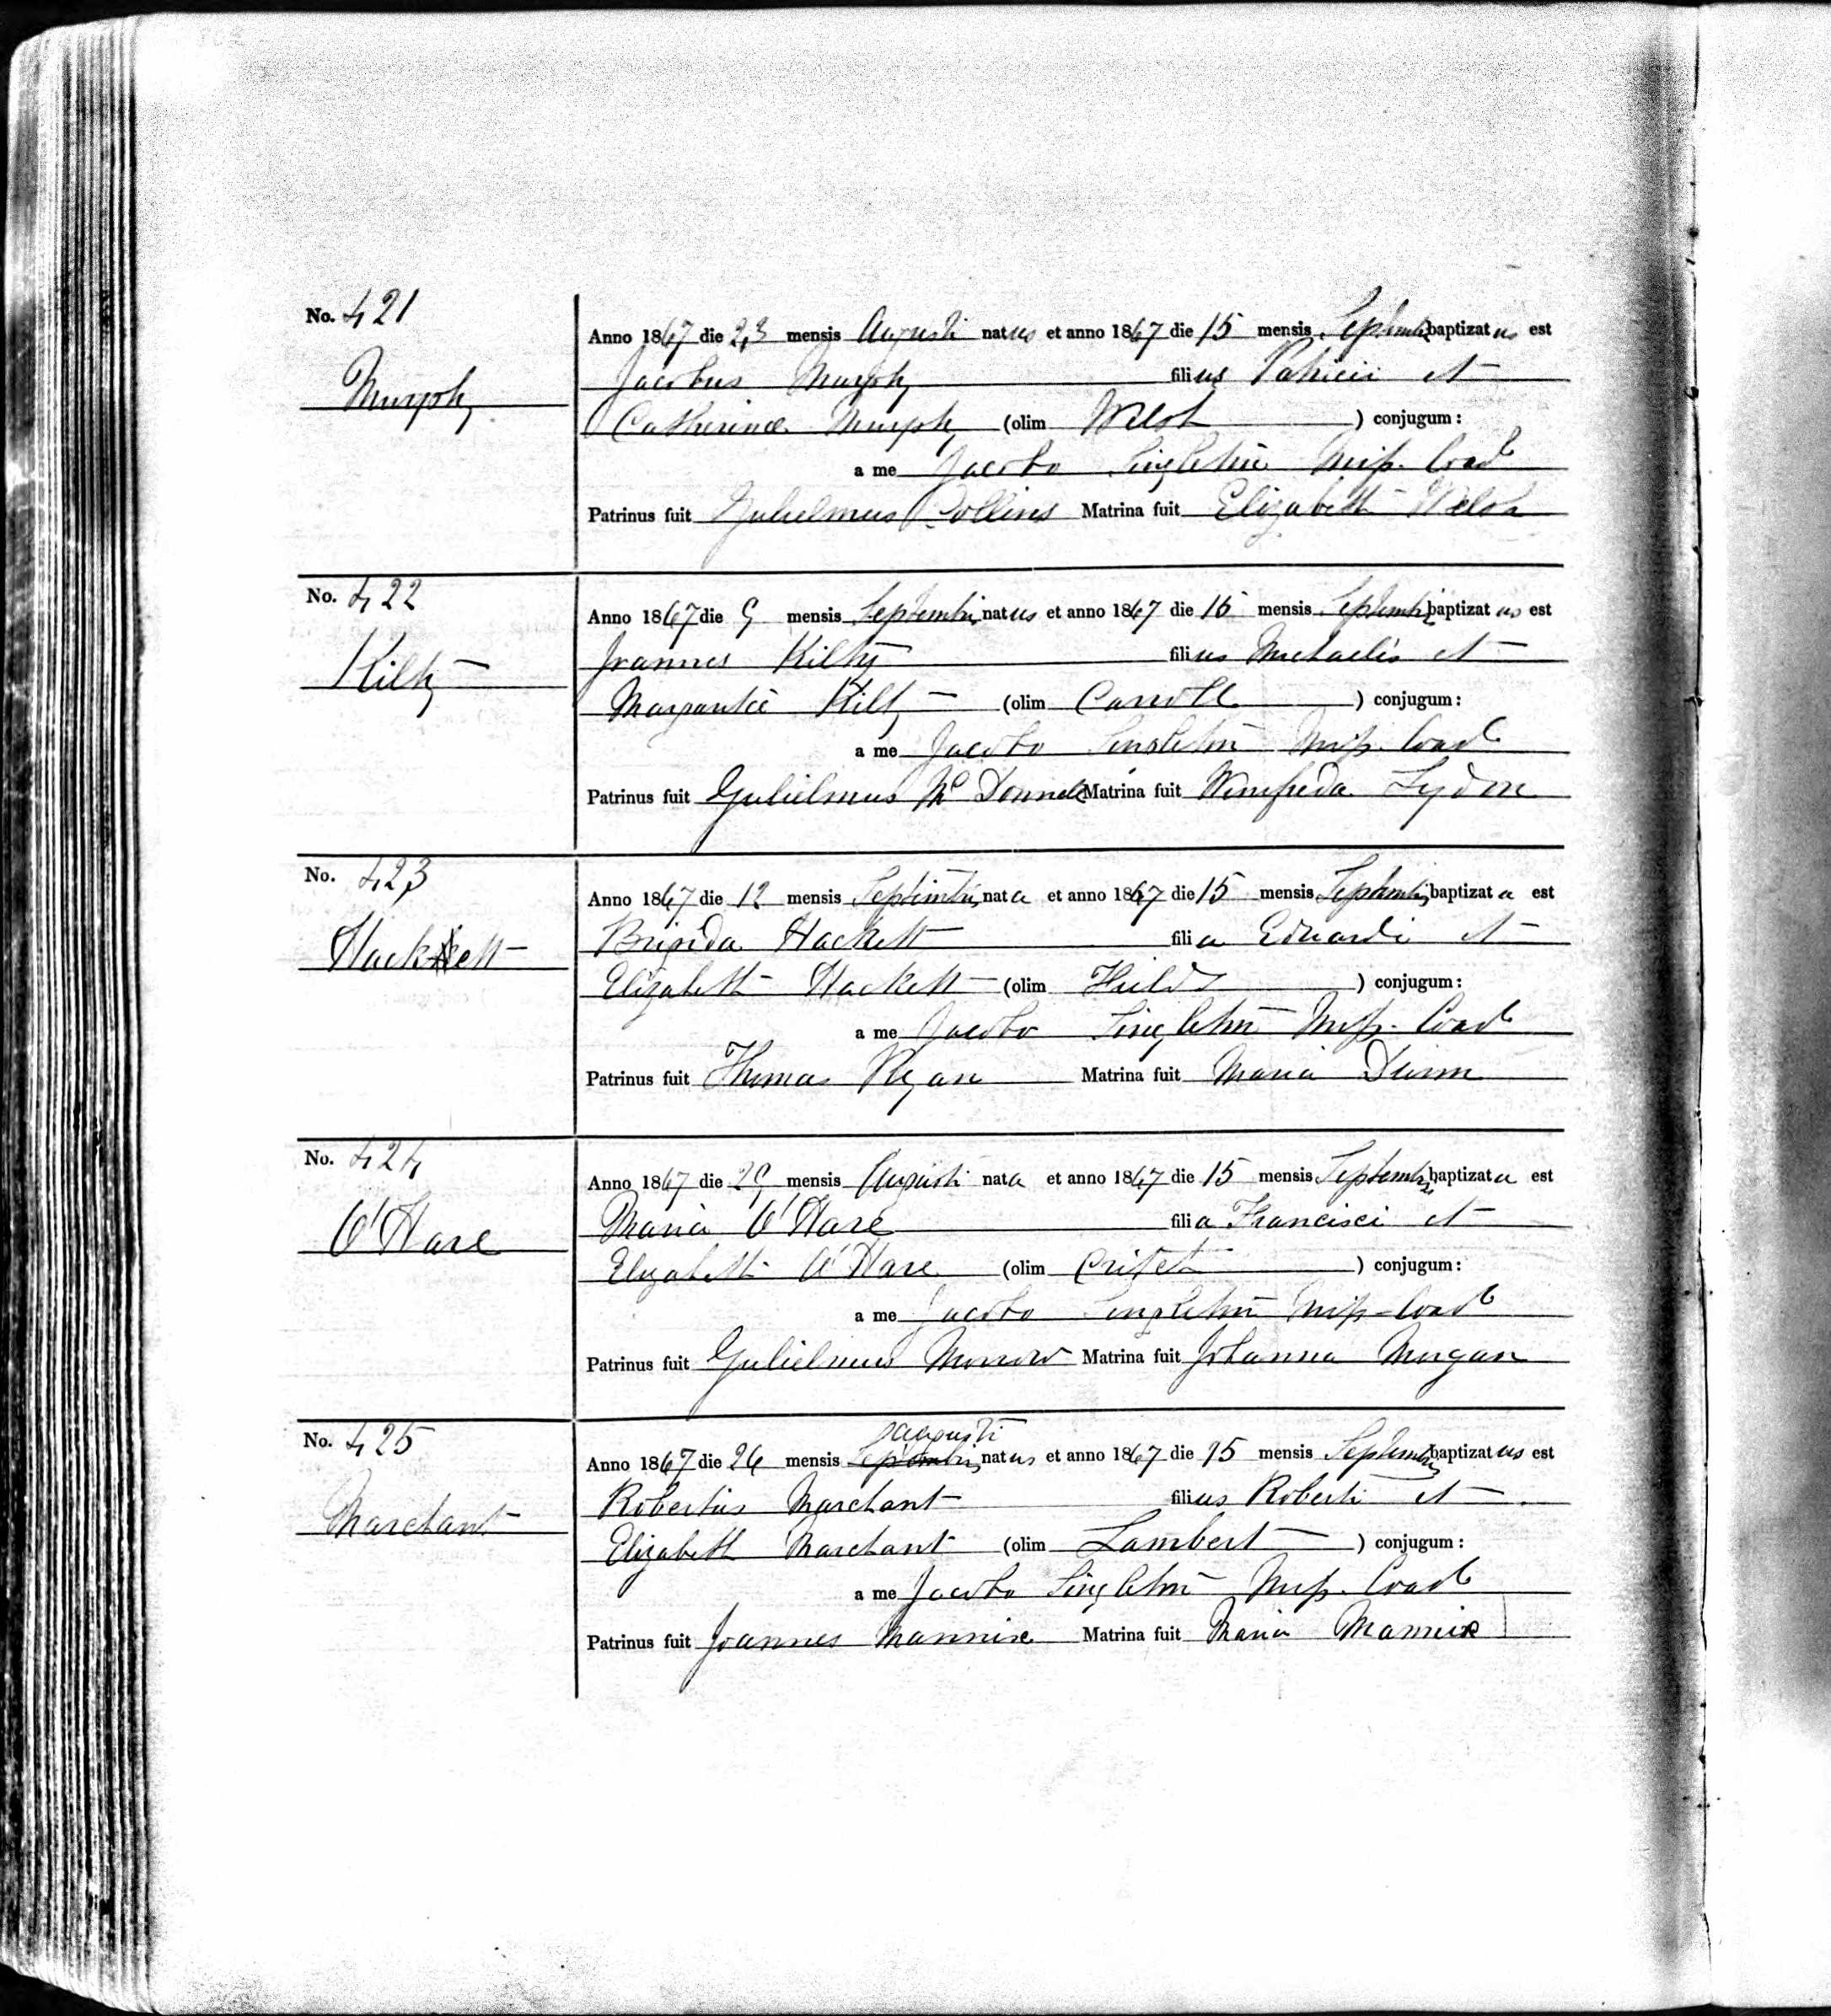 No. 421
Anno 1867 die 23 mensis Augusti natus et anno 1867 die 15 mensis Septembris baptizatus est
Murphy
Jacobus Murphy filius Patricii et
Catherinae Murphy (olim Welsh ) conjugum:
a me Jacobo Singleton Miss. Coad
Patrinus fuit Gulielmus Collins Matrina fuit Elizabeth Welsh
No. 422
Anno 1867 die 9 mensis Septembris natus et anno 1867 die 15 mensis Septembris baptizatus est
Kilty
Joannes Kilty filius Michaelis et
Margaritae Kilty (olim Carroll ) conjugum:
a me Jacobo Singleton Miss. Coad
Patrinus fuit Gulielmus McDonnell Matrina fuit Winifreda Lydon
No. 423
Anno 1867 die 12 mensis Septembris nata et anno 1867 die 15 mensis Septembris baptizata est
Hackett
Brigida Hackett filia Eduardi et
Elizabeth Hackett (olim ) conjugum:
a me Jacobo Singleton Miss. Coad
Patrinus fuit Thomas Ryan Matrina fuit Maria Dunn
No. 424
Anno 1867 die 29 mensis Augusti nata et anno 1867 die 15 mensis Septembris baptizata est
O'Hare
Maria O'Hare filia Francisci et
Elizabeth O'Hare (olim ) conjugum:
a me Jacobo Singleton Miss. Coad
Patrinus fuit Gulielmus Morrow Matrina fuit Johanna Morgan
No. 425
Augusti
Anno 1867 die 26 mensis Septembris natus et anno 1867 die 15 mensis Septembris baptizatus est
Marchant
Robertus Marchant filius Roberti et
Elizabeth Marchant (olim Lambert ) conjugum:
a me Jacobo Singleton Miss. Coad
Patrinus fuit Joannes Mannix Matrina fuit Maria Mannix